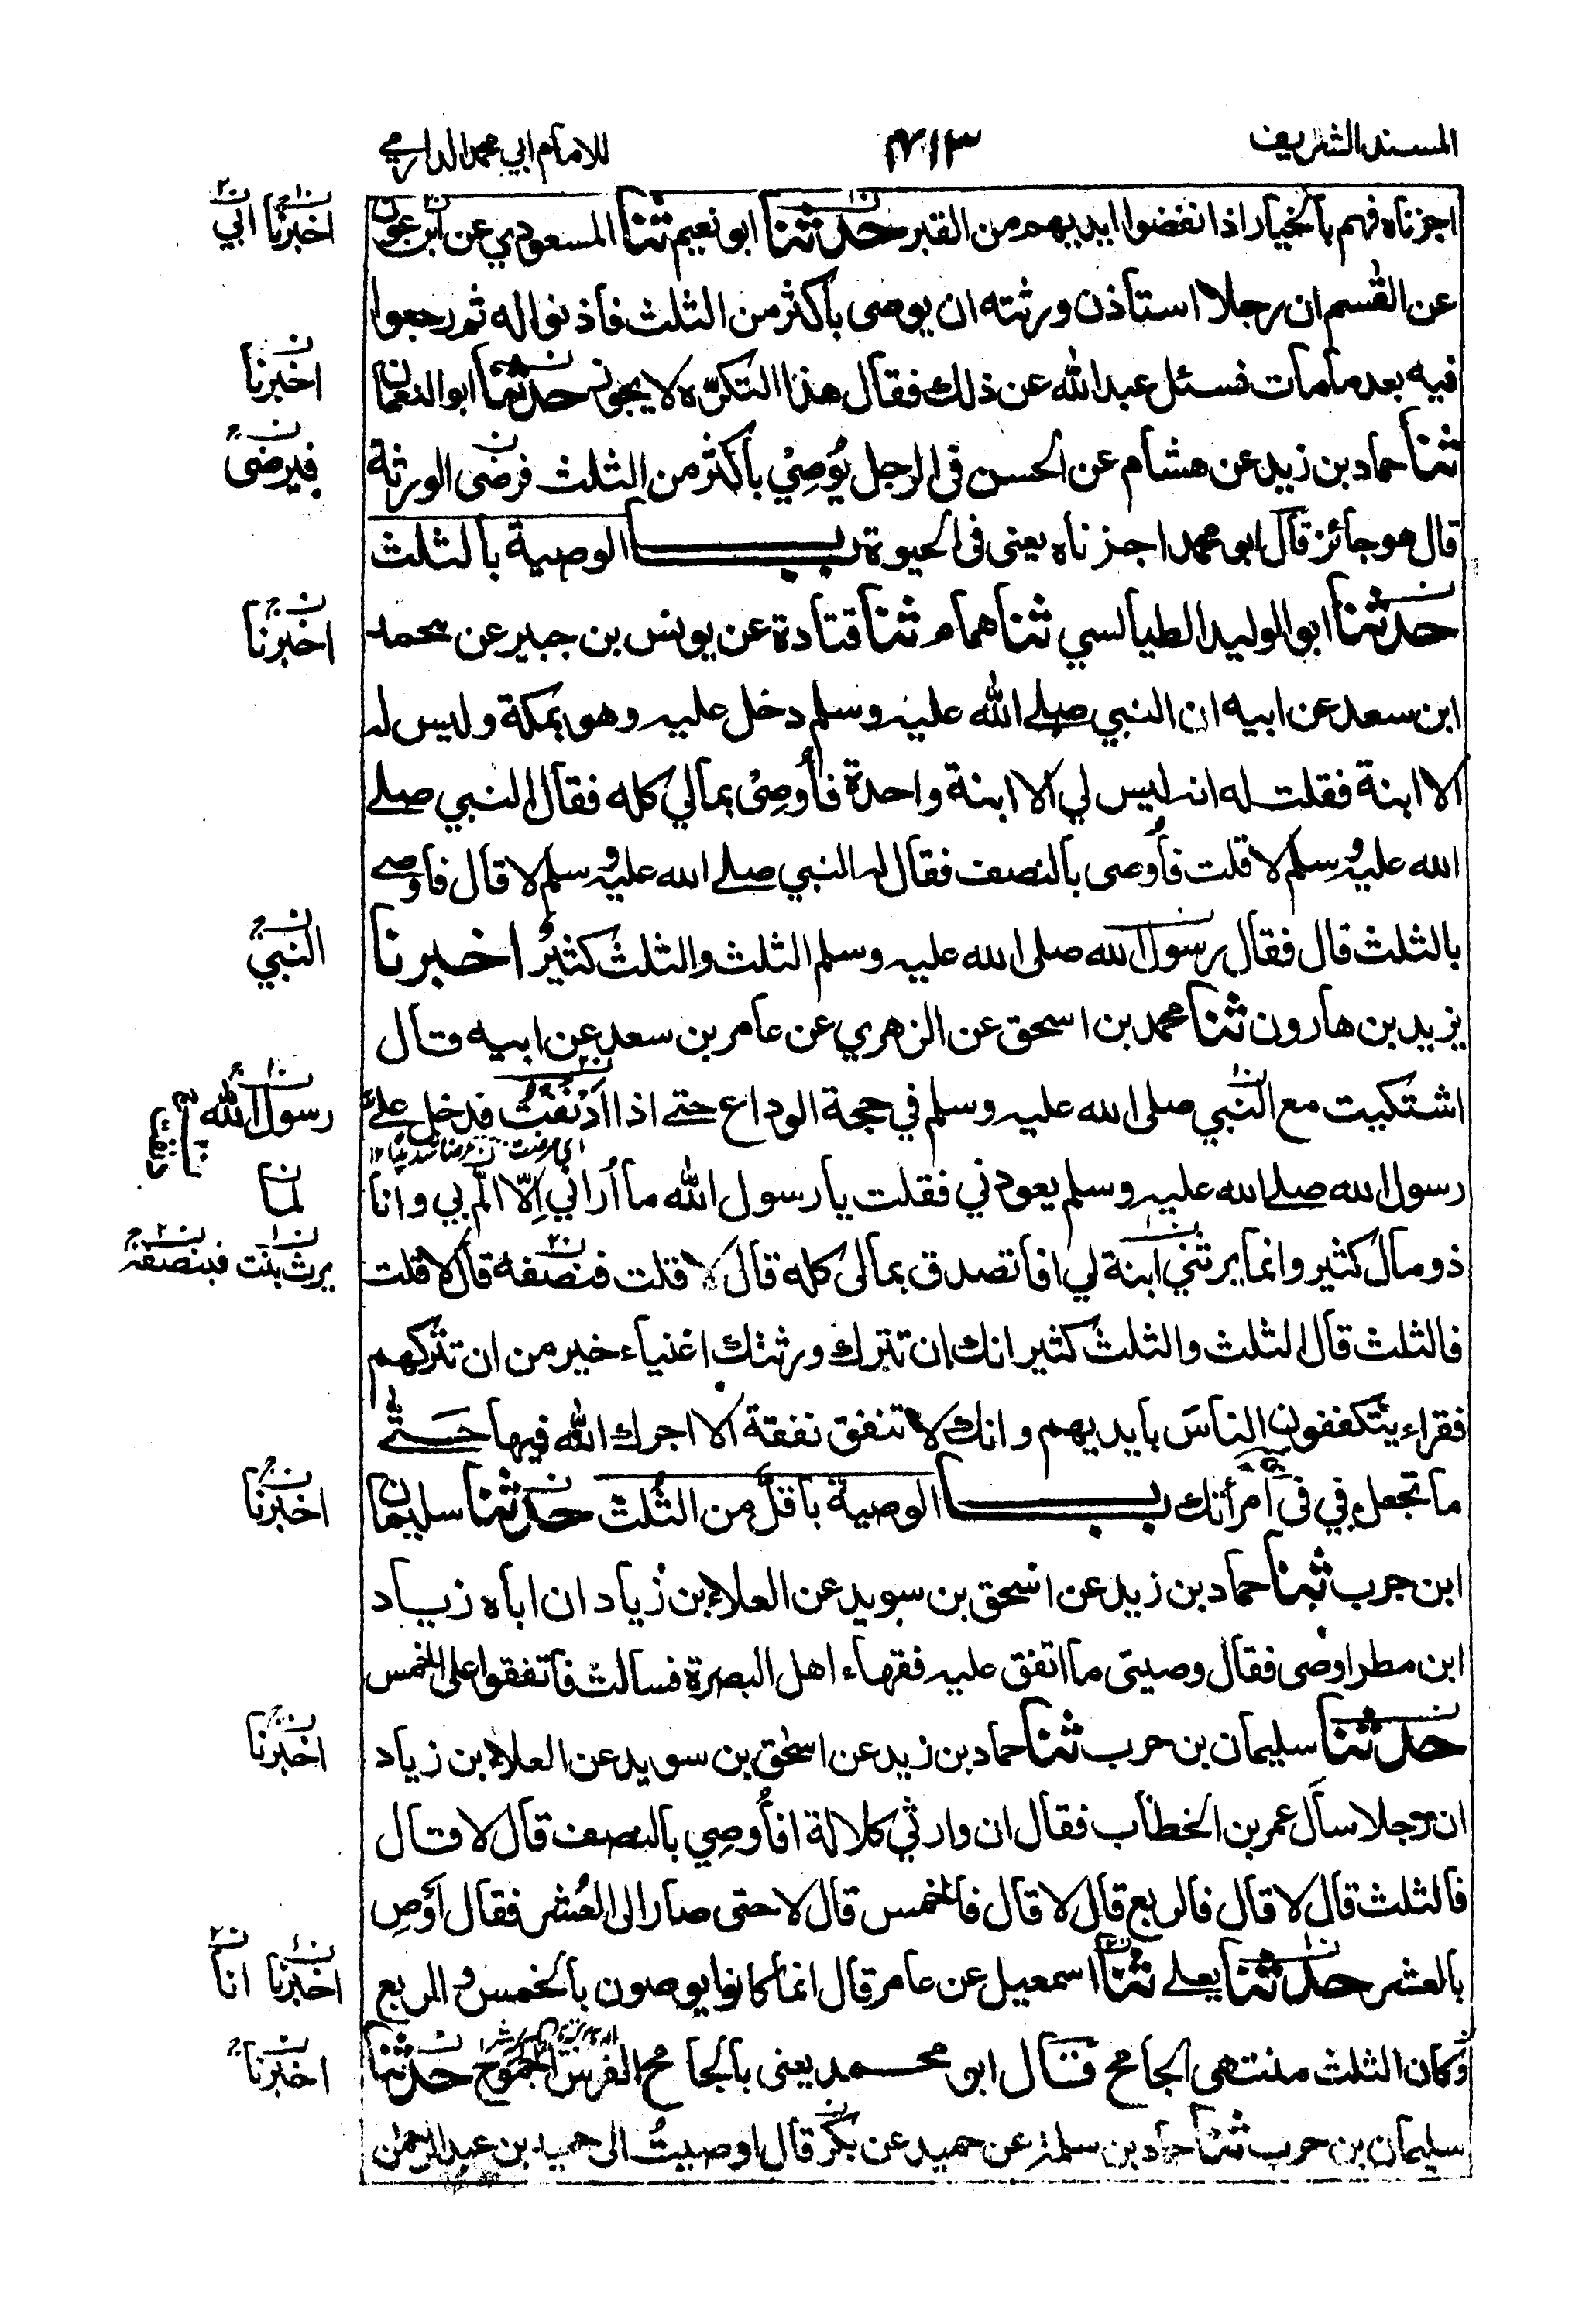 المسند الشريف ٤١٣ للامام ابي محمد الدارمي
اجزناه فهم بالخيار اذا نفضوا ايديهم من القبر حدثنا ابو نعيم ثنا المسعودي عن ابن عون
اخبرنا ابي
عن القسم ان رجلا استاذن ورثته ان يوصى باكثر من الثلث فاذنوا له ثم رجعوا
فيه بعد ما مات فسئل عبد الله عن ذلك فقال هذا التكرّه لا يجوز حدثنا ابو النعمان
اخبرنا
ثنا حماد بن زيد عن هشام عن الحسن فى الرجل يُوصِيْ باكثر من الثلث فرضى الورثة
فيرضى
قال هو جائز قال ابو محمد اجزناه يعنى فى الحيوة باب الوصية بالثلث
حدثنا ابو الوليد الطيالسي ثنا همام ثنا قتادة عن يونس بن جبير عن محمد
اخبرنا
ابن سعد عن ابيه ان النبي صلے الله عليه وسلم دخل عليه وهو بمكة وليس له
الا ابنة فقلت له انه ليس لي الا ابنة واحدة فأُوصِىْ بمالي كله فقال النبي صلے
الله عليه وسلم لا قلت فأُوصى بالنصف فقال له النبي صلے الله عليه وسلم لا قال فاوصے
بالثلث قال فقال رسول الله صلى الله عليه وسلم الثلث والثلث كثيرٌ اخبرنا
النبي
يزيد بن هارون ثنا محمد بن اسحق عن الزهري عن عامر بن سعد عن ابيه قال
اشتكيت مع النبي صلى الله عليه وسلم في حجة الوداع حتے اذا ادْنُفْتُ فدخل علىّ
رسول الله
اى مرضت مرضا شديدًا ١٢
رسول الله صلے الله عليه وسلم يعودني فقلت يا رسول الله ما أُراني اِلّا المّ بي وانا
لما
ذو مال كثير وانما يرثني ابنة لي افاتصدق بمالى كله قال لا قلت فنصفه قال لا قلت
يرث بنت فبنصفه
فالثلث قال الثلث والثلث كثير انك ان تترك ورثتك اغنياء خير من ان تتركهم
فقراء يتكففون الناسَ بايديهم وانك لا تنفق نفقة الا اجرك الله فيها حَتّے
ما تجعل في فى امرأتك باب الوصية باقلّ من الثُلث حدثنا سليمان
اخبرنا
ابن حرب ثنا حماد بن زيد عن اسحق بن سويد عن العلاء بن زياد ان اباه زياد
ابن مطر اوصى فقال وصيتى ما اتفق عليه فقهاء اهل البصرة فسالت فاتفقوا على الخمس
حدثنا سليمان بن حرب ثنا حماد بن زيد عن اسحق بن سويد عن العلاء بن زياد
اخبرنا
ان رجلا سأل عمر بن الخطاب فقال ان وارثي كلالة افأُوصِي بالنصف قال لا قال
فالثلث قال لا قال فالربع قال لا قال فالخمس قال لا حتى صار الى العُشر فقال اَوْصِ
بالعشر حدثنا يعلے ثنا اسمعيل عن عامر قال انما كانوا يوصون بالخمس والربع
اخبرنا انا
وكان الثلث منتهى الجامح قال ابو محمد يعنى بالجامح الفرس الجموح حدثنا
اخبرنا
سليمان بن حرب ثنا حماد بن سلمة عن حميد عن بكر قال اوصيتُ الى حميد بن عبد الرحمن